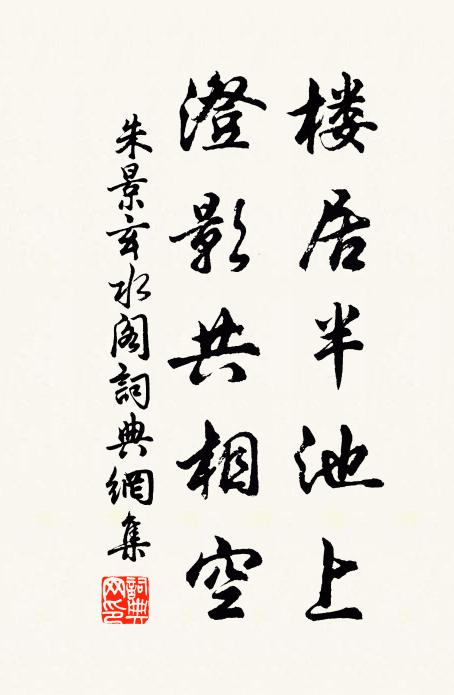 楼居半池上
澄影共相空
朱景玄水阁詞典網集
詞典网印